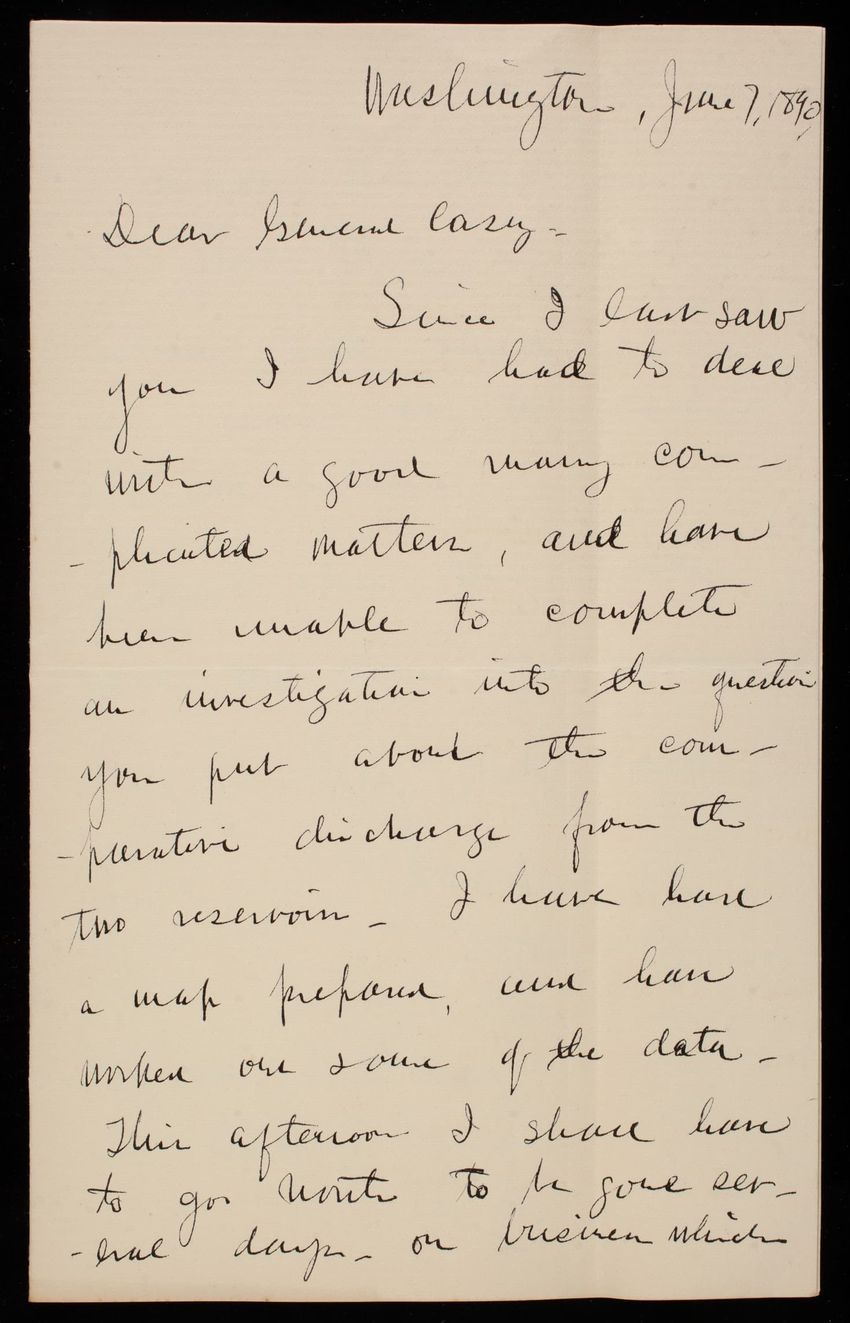 Washington, June 7, 1890,
Dear General Casey -
Since I last saw
you I have had to deal
with a good many com -
- plicated matters, and have
been unable to complete
an investigation into the question
you put about the com -
- parative discharge from the
two reservoirs - I have had
a map prepared, and have
worked out some of the data -
This afternoon I shall have
to go North to be gone sev -
- eral days - on business which